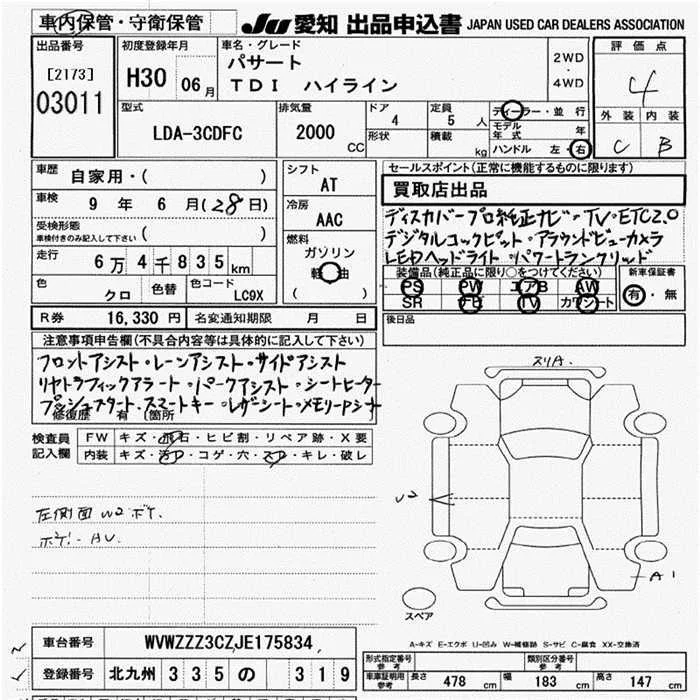 車内保管・守衛保管
JU 愛知 出品申込書 JAPAN USED CAR DEALERS ASSOCIATION
出品番号
[2173]
03011
初度登録年月
H30 06月
車名・グレード
パサート
TDI ハイライン
2WD
・
4WD
評価点
4
外装 内装
C B
型式
LDA-3CDFC
排気量
2000
CC
ドア
4
定員
5 人
形状
積載
kg
ディーラー・並行
モデル年式 年
ハンドル 左・右
車歴
自家用・( )
車検
9 年 6 月(28日)
受検形態
車検付きのみ記入して下さい ( )
走行
6万4千835km
色
クロ
色替
色コード
LC9X
シフト
AT
冷房
AAC
燃料
ガソリン
軽油
( )
セールスポイント(正常に機能するものに限ります)
買取店出品
ディスカバープロ純正ナビ・TV・ETC2.0
デジタルコックピット・アラウンドビューカメラ
LEDヘッドライト・パワートランクリッド
装備品(純正品に限り○をつけてください)
PS PW エアB AW
SR TV カワシート
新車保証書
有・無
後日品
R券 16,330円 名変通知期限 月 日
注意事項申告欄(不具合内容等は具体的に記入して下さい)
フロントアシスト・レーンアシスト・サイドアシスト
リヤトラフィックアラート・パークアシスト・シートヒーター
プッシュスタート.スマートキー・レザーシート・メモリーPシート
修復歴 有(箇所
検査員
記入欄
FW キズ・飛石・ヒビ割・リペア跡・X要
内装 キズ・汚れ・コゲ・穴・スレ・キレ・破レ
左側面W2ボケ.
スリA.
U2
A1
スペア
A-キズ E-エクボ U-凹み W-補修跡 S-サビ C-腐食 XX-交換済
車台番号 WVWZZZ3CZJE175834
登録番号 北九州 335 の 319
形式指定番号
参考
類別区分番号
参考
車庫証明用
参考
長さ 478 cm 幅 183 cm 高さ 147 cm